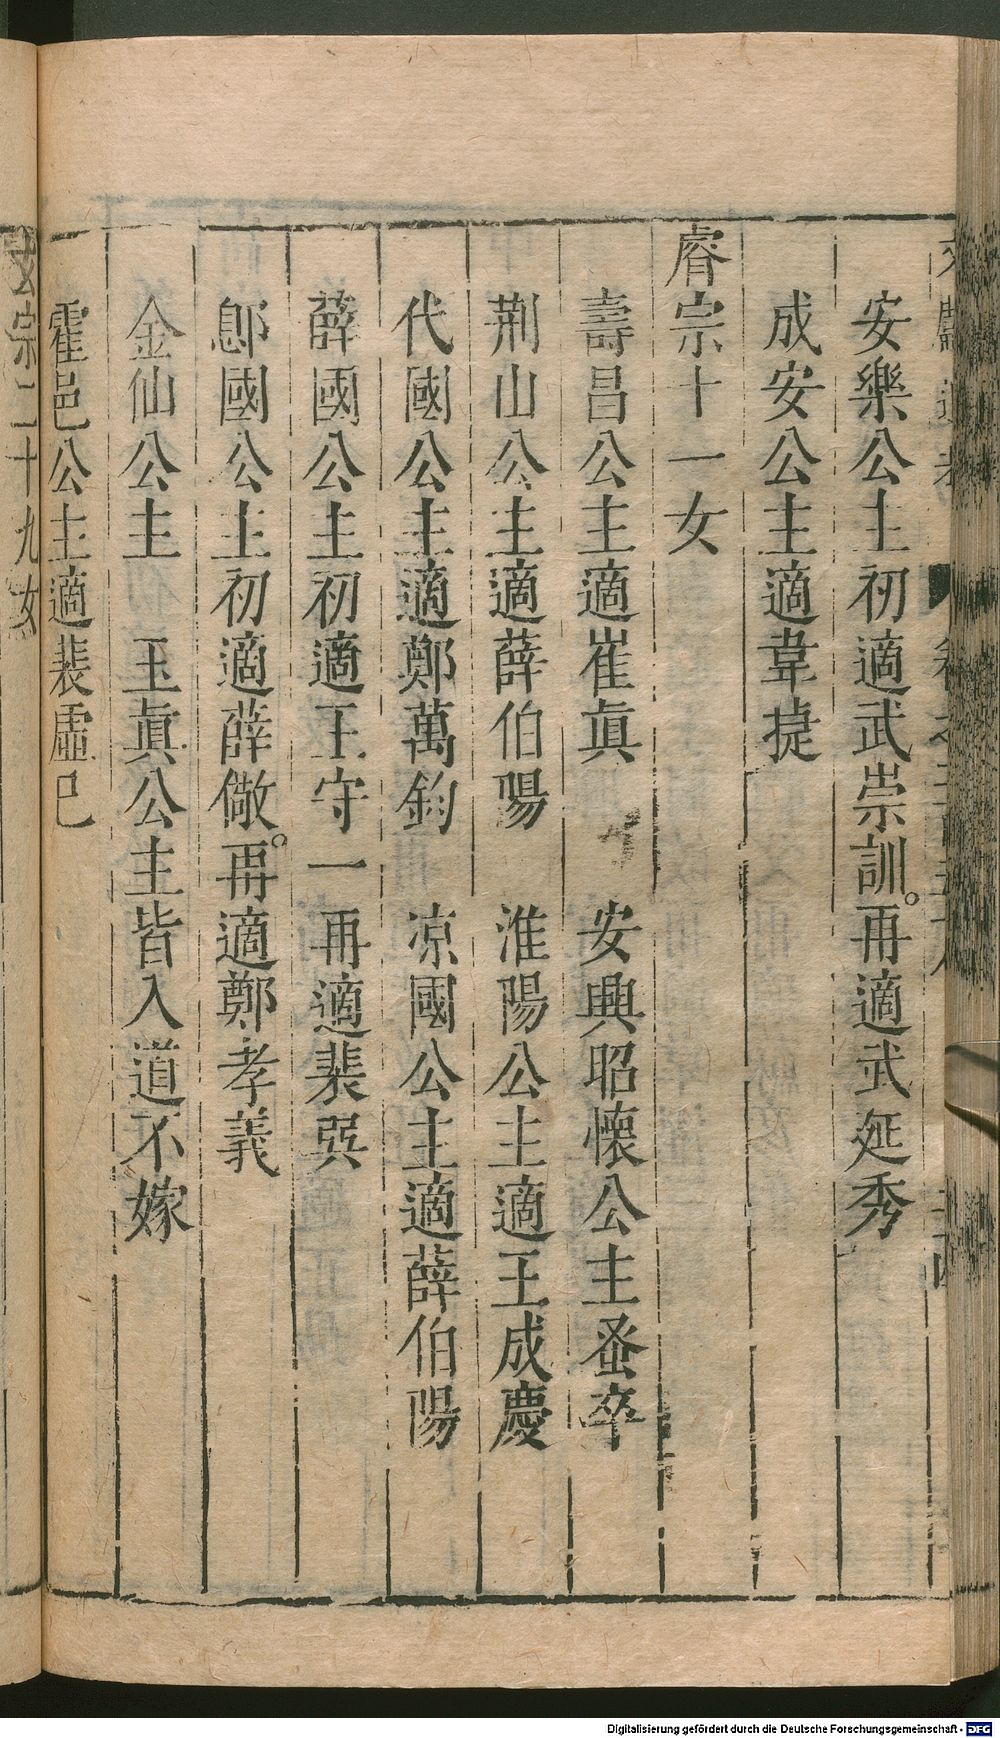 安樂公主初適武崇訓。再適武延秀
成安公主適韋捷
睿宗十一女
壽昌公主適崔眞　安興昭懷公主蚤卒
荆山公主適薛伯陽　淮陽公主適王成慶
代國公主適鄭萬鈞　凉國公主適薛伯陽
薛國公主初適王守一再適裴巽
鄎國公主初適薛儆。再適鄭孝義
金仙公主　玉眞公主皆入道不嫁
霍邑公主適裴虛已
玄宗二十九女
Digitalisierung gefördert durch die Deutsche Forschungsgemeinschaft - DFG